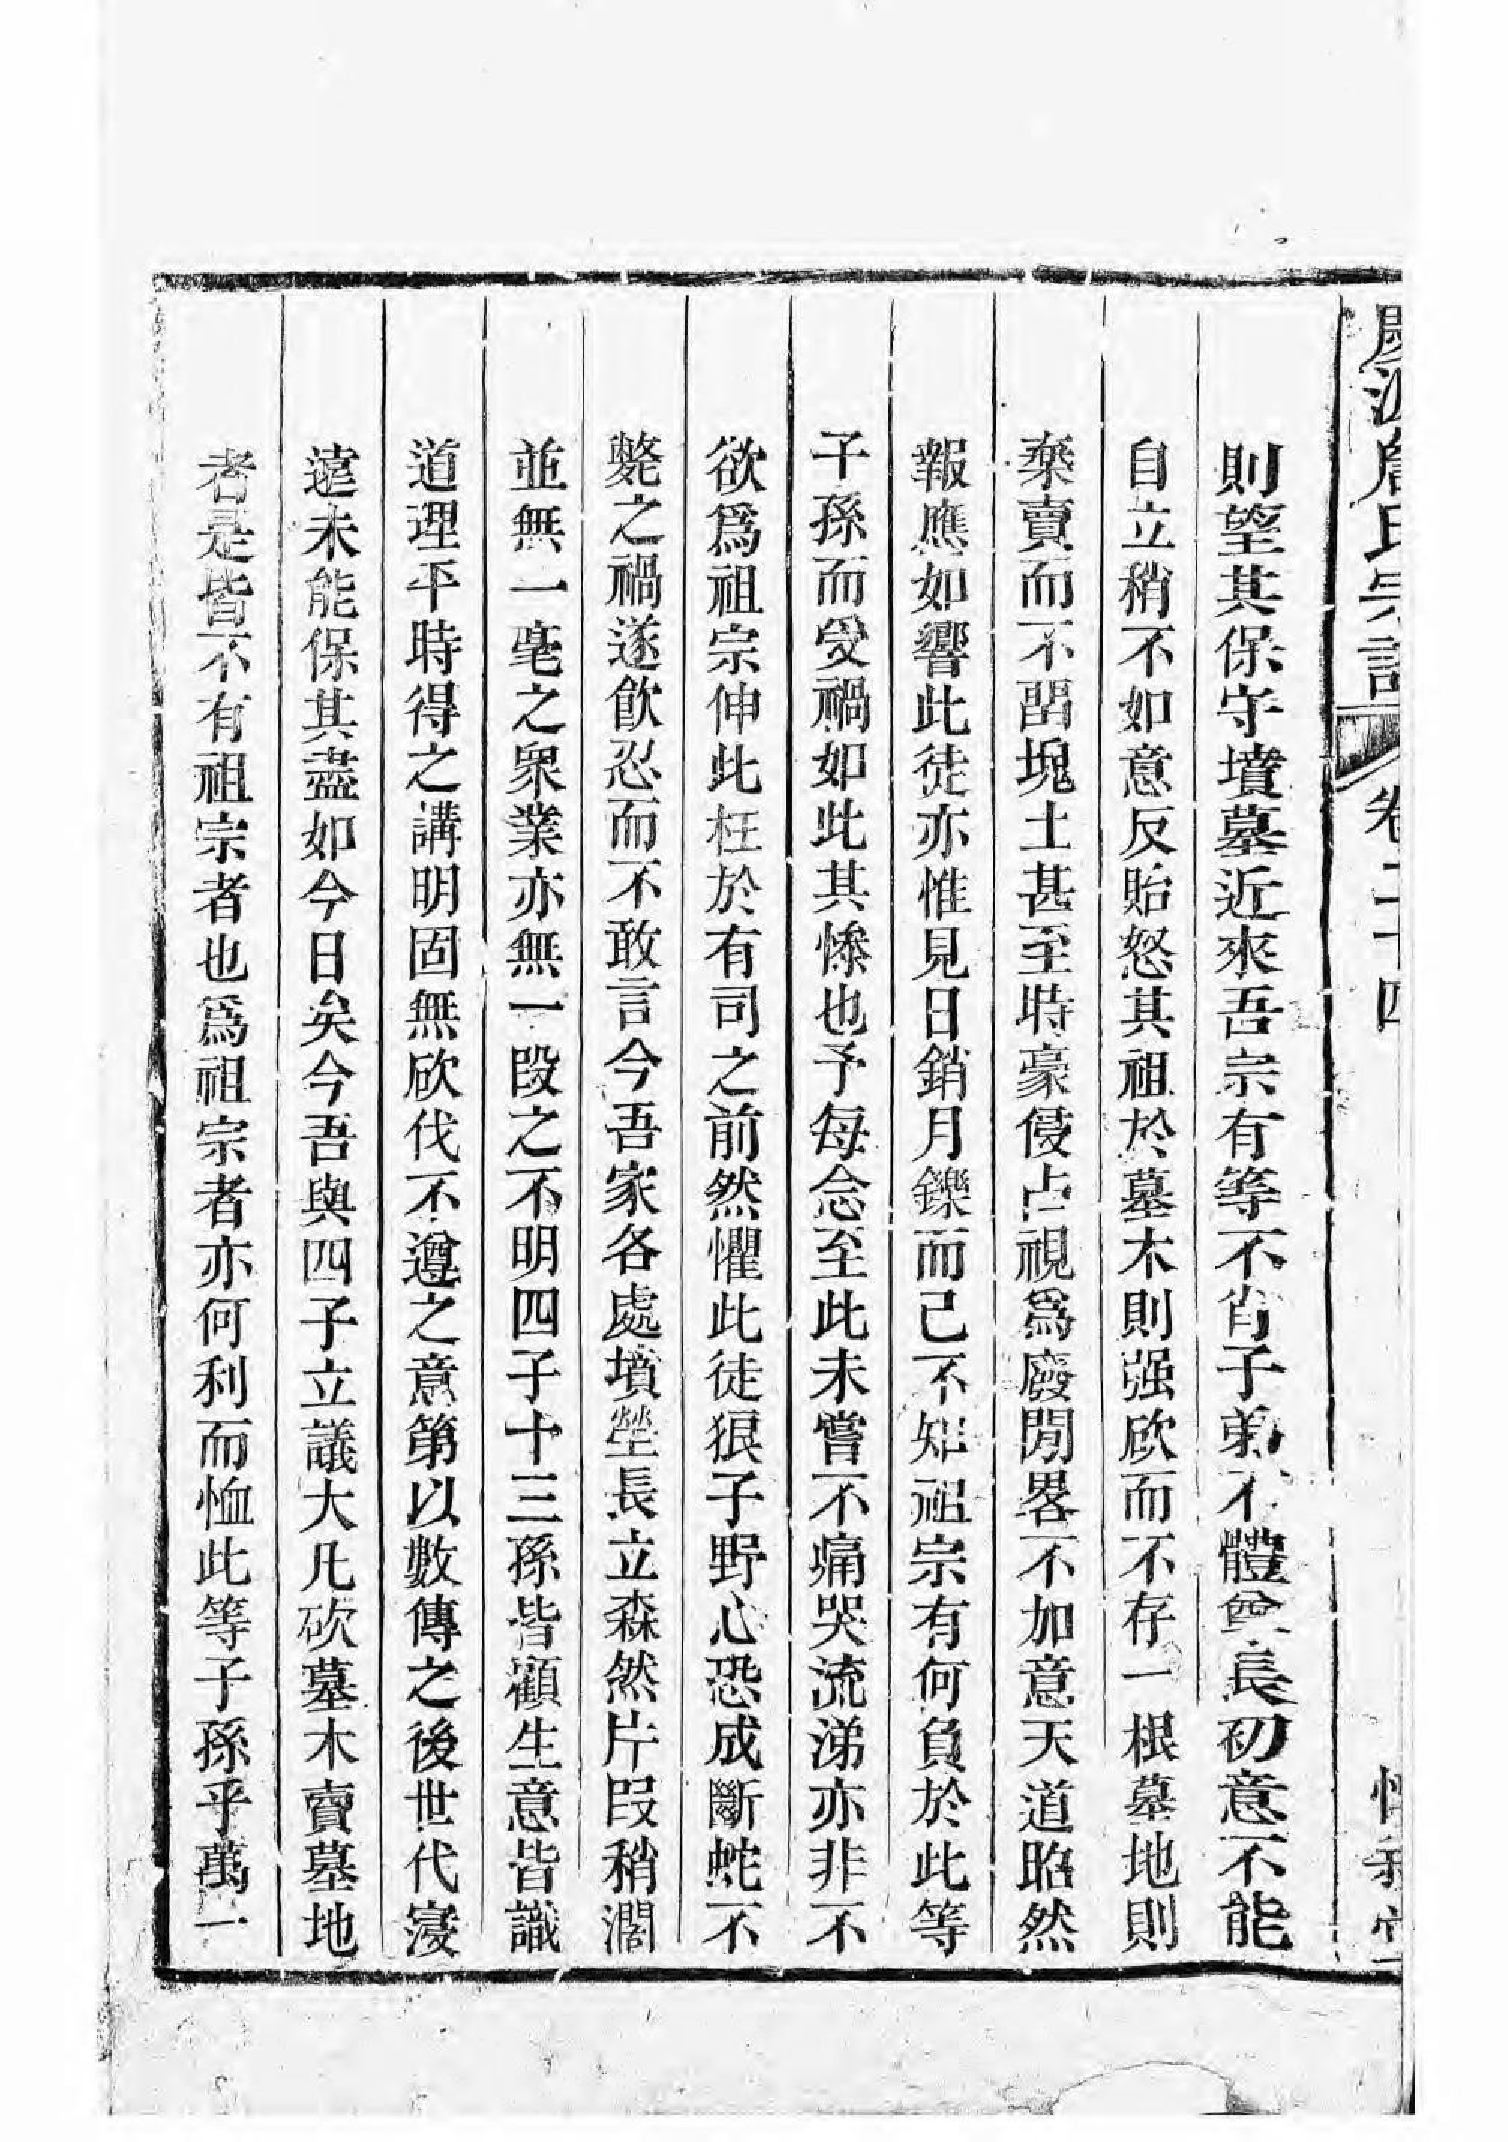 慶源詹氏宗譜 卷二十四
則望其保守墳墓近來吾宗有等不肖子弟不體尊長初意不能
自立稍不如意反貽怒其祖於墓木則强砍而不存一根墓地則
棄賣而不畱塊土甚至時豪侵占視爲廢閒畧不加意天道昭然
報應如響此徒亦惟見日銷月鑠而已不知祖宗有何負於此等
子孫而受禍如此其慘也予每念至此未嘗不痛哭流涕亦非不
欲爲祖宗伸此枉於有司之前然懼此徒狠子野心恐成斷蛇不
斃之禍遂飮忍而不敢言今吾家各處墳塋長立森然片段稍濶
並無一毫之衆業亦無一段之不明四子十三孫皆顧生意皆識
道理平時得之講明固無砍伐不遵之意第以數傳之後世代寖
遠未能保其盡如今日矣今吾與四子立議大凡砍墓木賣墓地
者是皆不有祖宗者也爲祖宗者亦何利而恤此等子孫乎萬一